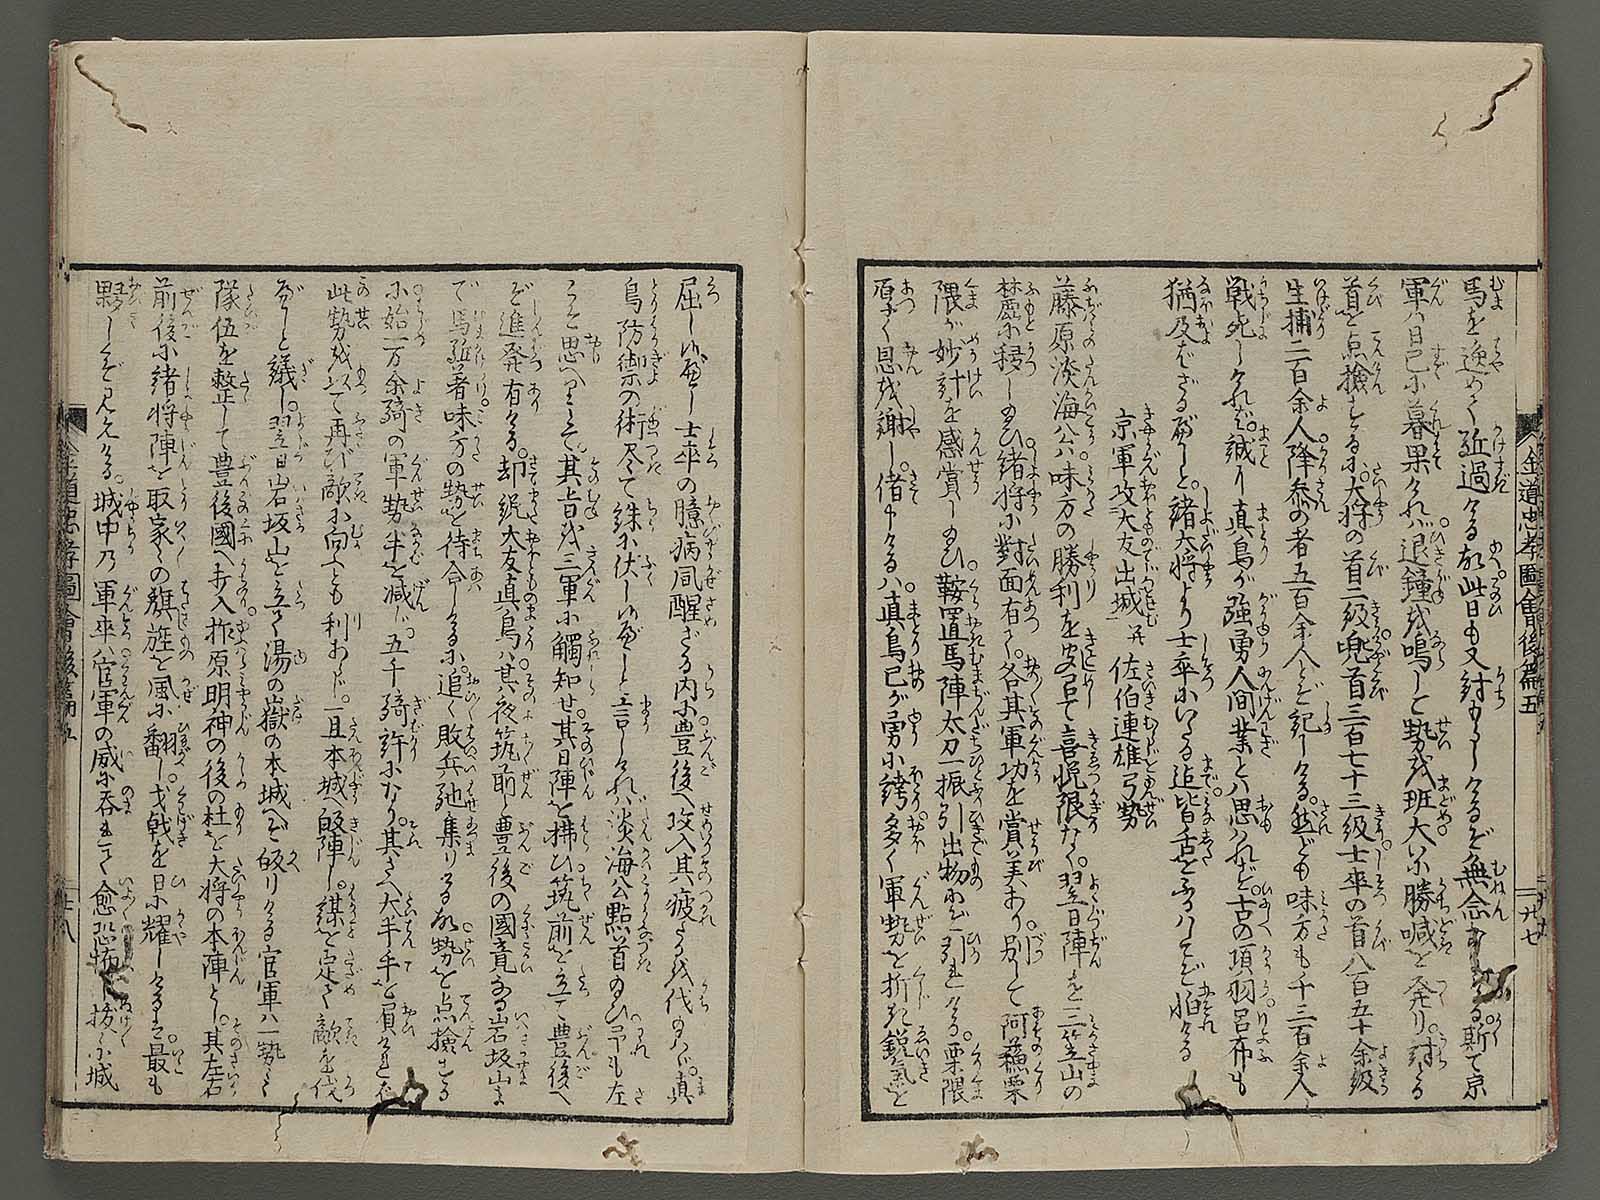 馬を逸めて近過ける故此日も又討もらしけるぞ無念なる斯て京
軍ハ日已に暮果けれバ退鐘を鳴して勢を班大いに勝喊を発り討たる
首を点撿するに大将の首二級兜首三百七十三級士卒の首八百五十余級
生捕二百余人降参の者五百余人とぞ記しける然ども味方も千三百余人
戦死しけれバ誠に真鳥が強勇人間業とハ思ハれず古の項羽呂布も
猶及ばざるべしと諸大将より士卒にいたる迄皆舌をふりハしてぞ怕ける
京軍攻大友出城 并 佐伯連雄弓勢
藤原淡海公ハ味方の勝利を安居て喜悦限なく翌日陣を三笠山の
麓に移し玉ひ諸将に對面有て各其軍功を賞美あり別して阿蘓栗
隈が妙計を感賞し玉ひ鞍置馬陣太刀一振引出物にぞ引れける栗隈
厚く恩を謝し偖申けるハ真鳥己が勇に誇多く軍勢を折き鋭気を
屈し候べし士卒の臆病風醒ざる内に豊後へ攻入其疲たるを伐玉ハヾ真
鳥防禦の術尽て誅に伏し候べしと言しけれバ淡海公點首玉ひ予も左
こそ思へりとて其旨を三軍に觸知せ其日陣を拂ひ筑前を立て豊後へ
ぞ進発有ける却説大友真鳥ハ其夜筑前と豊後の國堺なる岩坂山ま
で馬馳着味方の勢を待合しけるに追〻敗兵馳集りける故勢を点撿する
に始一万余騎の軍勢半を減じ五千騎許になり其さへ大半手を負けれバ
此勢を以て再び敵に向ふとも利あらじ一旦本城へ皈陣し謀を定て敵を伐
べしと議し翌日岩坂山を立て湯の嶽の本城へぞ皈りける官軍ハ一勢〻
隊伍を整して豊後國へ打入柞原明神の後の杜を大将の本陣とし其左右
前後に緒将陣を取家〻の籏旌を風に翻し戈戟を日に耀しけるを最も
夥しくぞ見えける城中乃軍卒ハ官軍の威に呑れて愈恐怖し抜〻に城
金道忠孝圖會後篇五
廿七
金道忠孝圖會後篇五
廿八